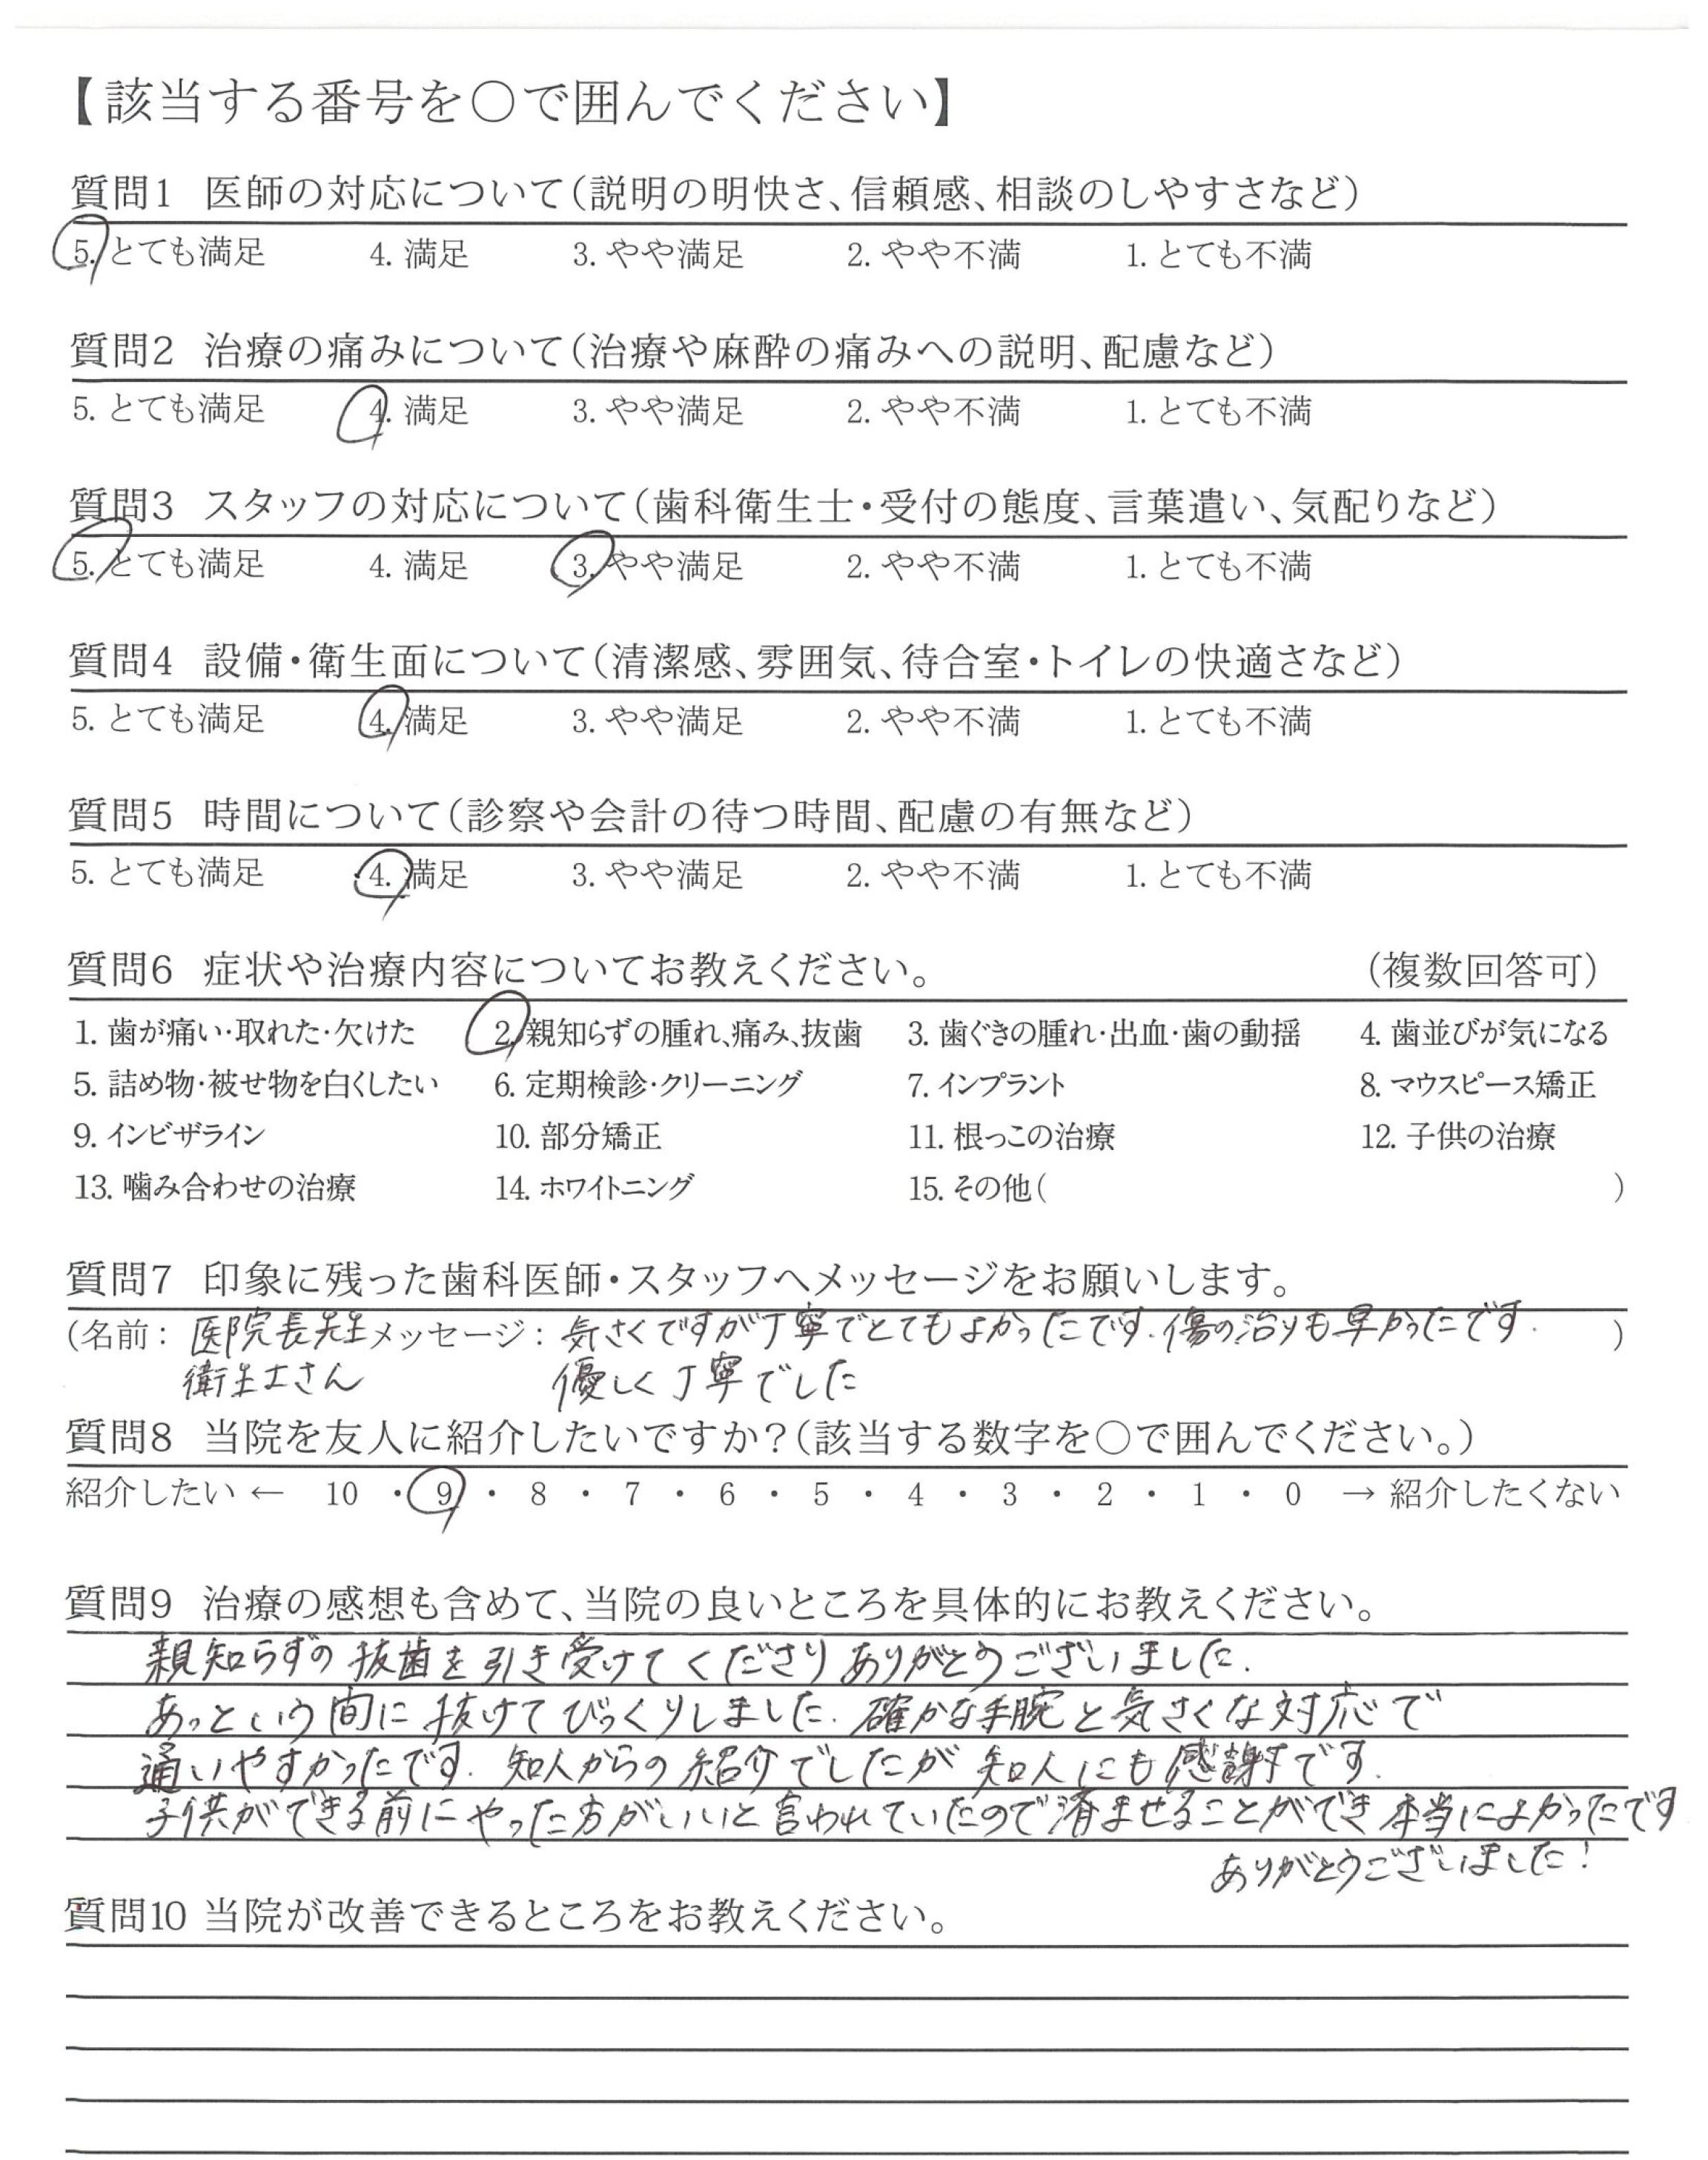 【該当する番号を○で囲んでください】
質問1 医師の対応について(説明の明快さ、信頼感、相談のしやすさなど)
5. とても満足 4. 満足 3. やや満足 2. やや不満 1. とても不満
質問2 治療の痛みについて(治療や麻酔の痛みへの説明、配慮など)
5. とても満足 4. 満足 3. やや満足 2. やや不満 1. とても不満
質問3 スタッフの対応について(歯科衛生士・受付の態度、言葉遣い、気配りなど)
5. とても満足 4. 満足 3. やや満足 2. やや不満 1. とても不満
質問4 設備・衛生面について(清潔感、雰囲気、待合室・トイレの快適さなど)
5. とても満足 4. 満足 3. やや満足 2. やや不満 1. とても不満
質問5 時間について(診察や会計の待つ時間、配慮の有無など)
5. とても満足 4. 満足 3. やや満足 2. やや不満 1. とても不満
質問6 症状や治療内容についてお教えください。 (複数回答可)
1. 歯が痛い・取れた・欠けた 2. 親知らずの腫れ、痛み、抜歯 3. 歯ぐきの腫れ・出血・歯の動揺 4. 歯並びが気になる
5. 詰め物・被せ物を白くしたい 6. 定期検診・クリーニング 7. インプラント 8. マウスピース矯正
9. インビザライン 10. 部分矯正 11. 根っこの治療 12. 子供の治療
13. 噛み合わせの治療 14. ホワイトニング 15. その他( )
質問7 印象に残った歯科医師・スタッフへメッセージをお願いします。
(名前: 医院長先生 メッセージ: 気さくですが丁寧でとてもよかったです.傷の治りも早かったです. )
衛生士さん 優しく丁寧でした
質問8 当院を友人に紹介したいですか?(該当する数字を○で囲んでください。)
紹介したい ← 10 ・ 9 ・ 8 ・ 7 ・ 6 ・ 5 ・ 4 ・ 3 ・ 2 ・ 1 ・ 0 → 紹介したくない
質問9 治療の感想も含めて、当院の良いところを具体的にお教えください。
親知らずの抜歯を引き受けてくださりありがとうございました.
あっという間に抜けてびっくりしました.確かな手腕と気さくな対応で
通いやすかったです.知人からの紹介でしたが知人にも感謝です.
子供ができる前にやった方がいいと言われていたので済ませることができ本当によかったです
ありがとうございました!
質問10 当院が改善できるところをお教えください。